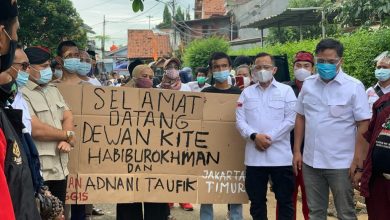 SELAMAT
DATANG
DEWAN KITE
HABIBUROKHMAN
DAN
ADNANI TAUFIK
JAKARTA
TIMUR